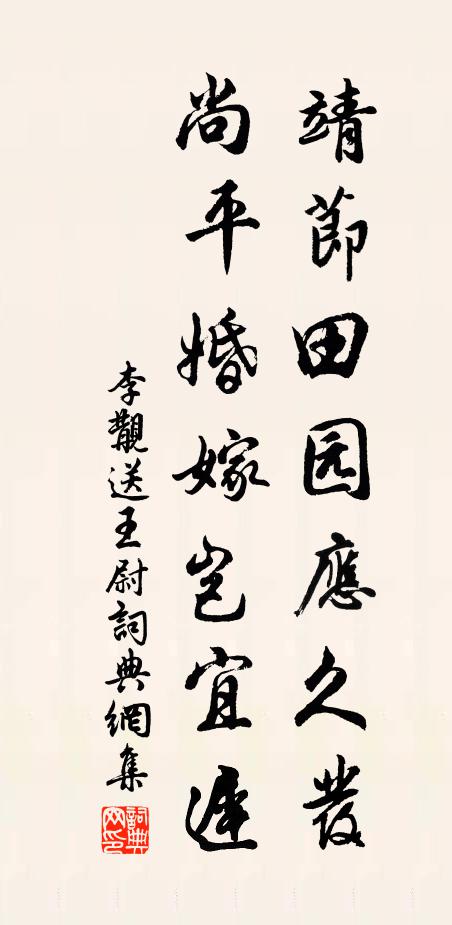 靖節田园應久發
尚平婚嫁岂宜遲
李覯送王尉詞典網集
詞典
网印